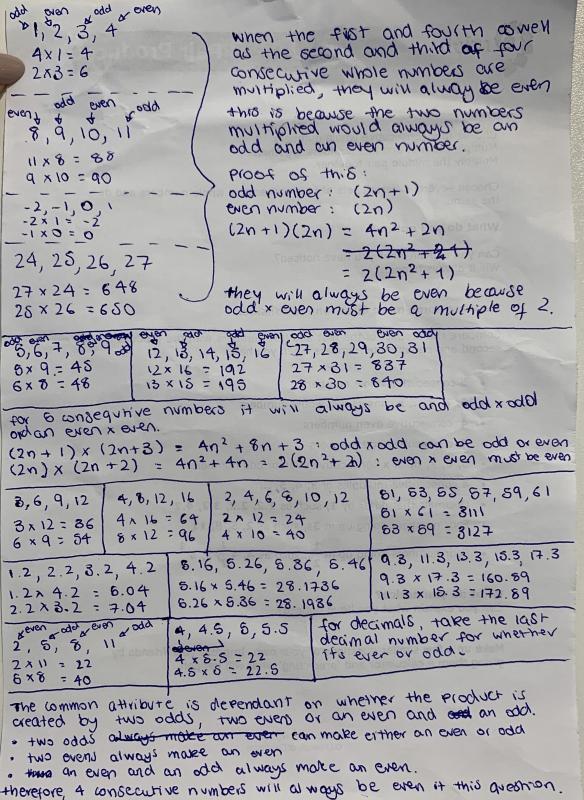 odd even odd even
1, 2, 3, 4
4 x 1 = 4
2 x 3 = 6
even odd even odd
8, 9, 10, 11
11 x 8 = 88
9 x 10 = 90
-2, -1, 0, 1
-2 x 1 = -2
-1 x 0 = 0
24, 25, 26, 27
27 x 24 = 648
25 x 26 = 650
when the first and fourth as well
as the second and third of four
consecutive whole numbers are
multiplied, they will always be even
this is because the two numbers
multiplied would always be an
odd and an even number.
Proof of this:
odd number: (2n+1)
even number: (2n)
(2n+1)(2n) = 4n² + 2n
= 2(2n² + 1)
= 2(2n² + 1)
they will always be even because
odd x even must be a multiple of 2.
odd even odd
5, 6, 7, 8, 9
5 x 9 = 45
6 x 8 = 48
even odd odd even
12, 13, 14, 15, 16
12 x 16 = 192
13 x 15 = 195
odd even even odd
27, 28, 29, 30, 31
27 x 31 = 837
28 x 30 = 840
for 5 consequtive numbers it will always be and odd x odd
and an even x even.
(2n + 1) x (2n+3) = 4n² + 8n + 3 : odd x odd can be odd or even
(2n) x (2n + 2) = 4n² + 4n = 2(2n² + 2) : even x even must be even
3, 6, 9, 12
3 x 12 = 36
6 x 9 = 54
4, 8, 12, 16
4 x 16 = 64
8 x 12 = 96
2, 4, 6, 8, 10, 12
2 x 12 = 24
4 x 10 = 40
51, 53, 55, 57, 59, 61
51 x 61 = 3111
53 x 59 = 3127
1.2, 2.2, 3.2, 4.2
1.2 x 4.2 = 5.04
2.2 x 3.2 = 7.04
5.16, 5.26, 5.36, 5.46
5.16 x 5.46 = 28.1736
5.26 x 5.36 = 28.1936
9.3, 11.3, 13.3, 15.3, 17.3
9.3 x 17.3 = 160.89
11.3 x 15.3 = 172.89
even odd even odd
2, 5, 8, 11
2 x 11 = 22
5 x 8 = 40
4, 4.5, 5, 5.5
even
4 x 5.5 = 22
4.5 x 5 = 22.5
for decimals, take the last
decimal number for whether
its even or odd.
The common attribute is dependant on whether the product is
created by two odds, two evens or an even and an odd.
• two odds always make an even can make either an even or odd
• two evens always make an even
• an even and an odd always make an even.
therefore, 4 consecutive numbers will always be even it this question.